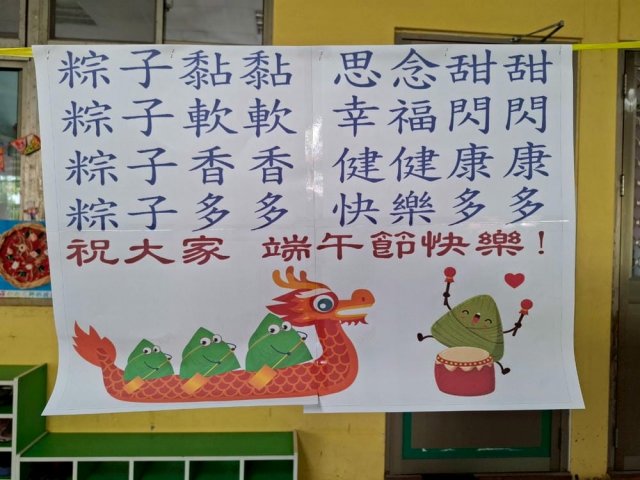 粽子黏黏 思念甜甜
粽子軟軟 幸福閃閃
粽子香香 健健康康
粽子多多 快樂多多
祝大家 端午節快樂！